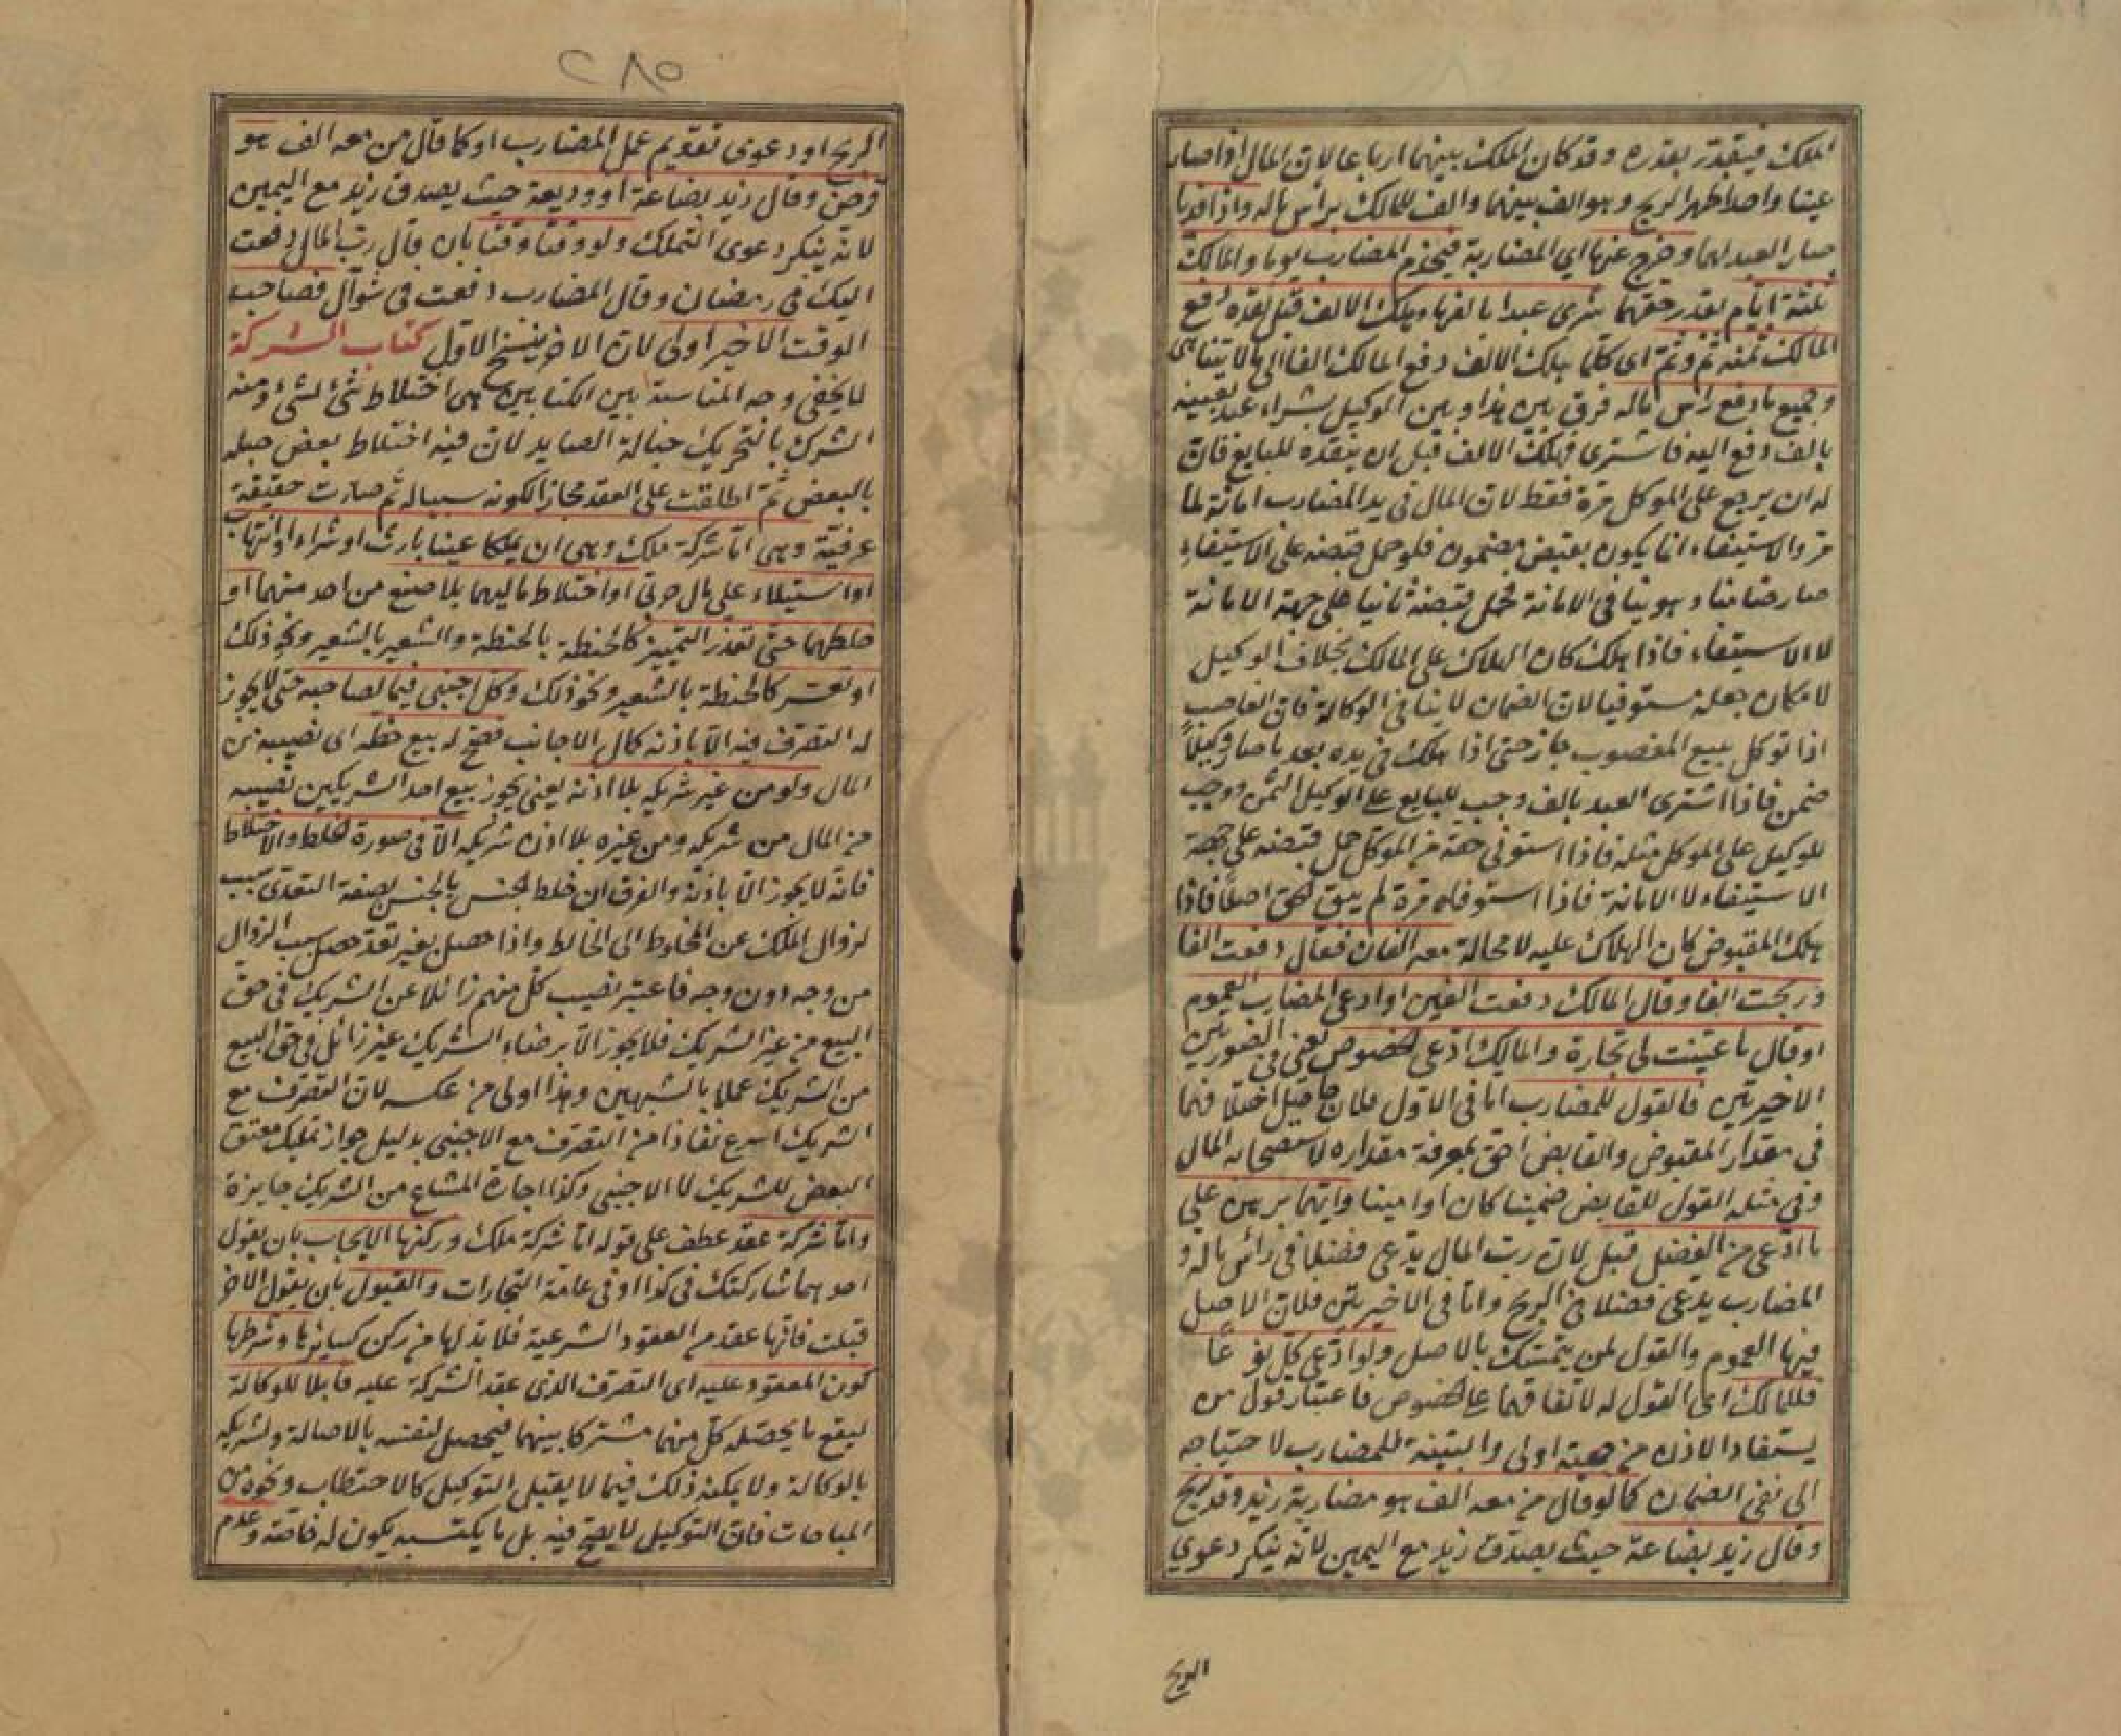 الملك فيتقدر بقدره وقد كان الملك بينهما ارباعا لان المال اذا صار
عينا واحدا ظهر الربح وهو الف بينهما والف للمالك براس ماله واذا فديا
صار العبد لهما وخرج عنها اي المضاربة فيخدم المضارب يوما والمالك
ثلثة ايام بقدر حقهما شرى عبدا بالفها وهلك الالف قبل نقده دفع
المالك ثمنه ثم وثم اى كلما هلك الالف دفع المالك الفا الى ما لا يتناهى
وجميع ما دفع راس ماله فرق بين هذا وبين الوكيل بشراء عبد بعينه
بالف دفع اليه فاشترى فهلك الالف قبل ان ينقده للبايع فان
له ان يرجع على الموكل مرة فقط لان المال فى يد المضارب امانة لما
مر والاستيفاء انما يكون بقبض مضمون فلو حمل قبضه على الاستيفاء
صار ضامنا وهو ينافى الامانة فحمل قبضه ثانيا على جهة الامانة
لا الاستيفاء فاذا هلك كان الهلاك على المالك بخلاف الوكيل
لامكان جعله مستوفيا لان الضمان لا ينافى الوكالة فان الغاصب
اذا توكل ببيع المغصوب جاز حتى اذا هلك فى يده بعد ما صار وكيلا
ضمن فاذا اشترى العبد بالف وجب للبايع على الوكيل الثمن ووجب
للوكيل على الموكل مثله فاذا استوفى حقه من الموكل حمل قبضه على جهة
الاستيفاء لا الامانة فاذا استوفاه مرة لم يبق لحق اصلا فاذا
هلك المقبوض كان الهلاك عليه لا محالة معه الفان فقال دفعت الفا
وربحت الفا وقال المالك دفعت الفين او ادعى المضارب العموم
او قال ما عينت لى تجارة والمالك ادعى الخصوص يعنى فى الصورتين
الاخيرتين فالقول للمضارب اما فى الاول فلان حاصل اختلافهما
فى مقدار المقبوض والقابض احق بمعرفة مقداره لاستصحابه المال
وفى مثله القول للقابض ضمينا كان او امينا وايهما برهن على
ما ادعى من الفضل قبل لان رب المال يدعى فضلا فى راس ماله و
المضارب يدعى فضلا فى الربح واما فى الاخيرتين فلان الاصل
فيها العموم والقول لمن يتمسك بالاصل ولو ادعى كل نوعا
فللمالك اى القول له لاتفاقهما على الخصوص فاعتبار قول من
يستفاد الاذن من جهته اولى والبينة للمضارب لاحتياجه
الى نفى الضمان كما لو قال من معه الف هو مضاربة زيد وقد ربح
وقال زيد بضاعة حيث يصدق زيد مع اليمين لانه ينكر دعوي
الربح
٢٨٥
الربح او دعوى تقويم عمل المضارب او كما قال من معه الف هو
قرض وقال زيد بضاعة او وديعة حيث يصدق زيد مع اليمين
لانه ينكر دعوى التملك ولو وقتا وقتا بان قال رب المال دفعت
اليك فى رمضان وقال المضارب دفعت فى شوال فصاحب
الوقت الاخير اولى لان الاخر ينسخ الاول كتاب الشركة
لا يخفى وجه المناسبة بين الكتابين هى اختلاط شئ لشئ ومنه
الشرك بالتحريك حبالة الصايد لان فيه اختلاط بعض حبله
بالبعض ثم اطلقت على العقد مجازا لكونه سببا له ثم صارت حقيقة
عرفية وهى اما شركة ملك وهى ان يملكا عينا بارث او شراء او اتهاب
او استيلاء على مال حربى او اختلاط ماليهما بلا صنع من احد منهما او
خلطهما حتى تعذر التمييز كالحنطة بالحنطة والشعير بالشعير ونحو ذلك
او تعسر كالحنطة بالشعير ونحو ذلك وكل اجنبى فيما لصاحبه حتى لا يجوز
له التصرف فيه الا باذنه كمال الاجانب فصح له بيع حظه اى نصيبه من
المال ولو من غير شريكه بلا اذنه يعنى يجوز بيع احد الشريكين نصيبه
من المال من شريكه ومن غيره بلا اذن شريكه الا فى صورة الخلط والاختلاط
فانه لا يجوز الا باذنه والفرق ان خلط الجنس بالجنس بصفة التعدى سبب
لزوال الملك عن المخلوط الى الخالط واذا حصل بغير تعد حصل سبب الزوال
من وجه دون وجه فاعتبر نصيب كل منهم زائلا عن الشريك فى حق
البيع من غير الشريك فلا يجوز الا برضاء الشريك غير زائل فى حق البيع
من الشريك عملا بالشبهين وهذا اولى من عكسه لان التصرف مع
الشريك اسرع نفاذا من التصرف مع الاجنبى بدليل جواز تمليك معتق
البعض للشريك لا الاجنبى وكذا اجارة المشاع من الشريك جايزة
واما شركة عقد عطف على قوله اما شركة ملك وركنها الايجاب بان يقول
احدهما شاركتك فى كذا او فى عامة التجارات والقبول بان يقول الاخر
قبلت فانها عقد من العقود الشرعية فلا بد لها من ركن كسايرها وشرطها
كون المعقود عليه اى التصرف الذى عقد الشركة عليه قابلا للوكالة
ليقع ما يحصله كل منهما مشتركا بينهما فيحصل لنفسه بالاصالة ولشريكه
بالوكالة ولا يمكنه ذلك فيما لا يقبل التوكيل كالاحتطاب ونحوه من
المباحات فان التوكيل لا يصح فيه بل ما يكتسبه يكون له خاصة وعدم